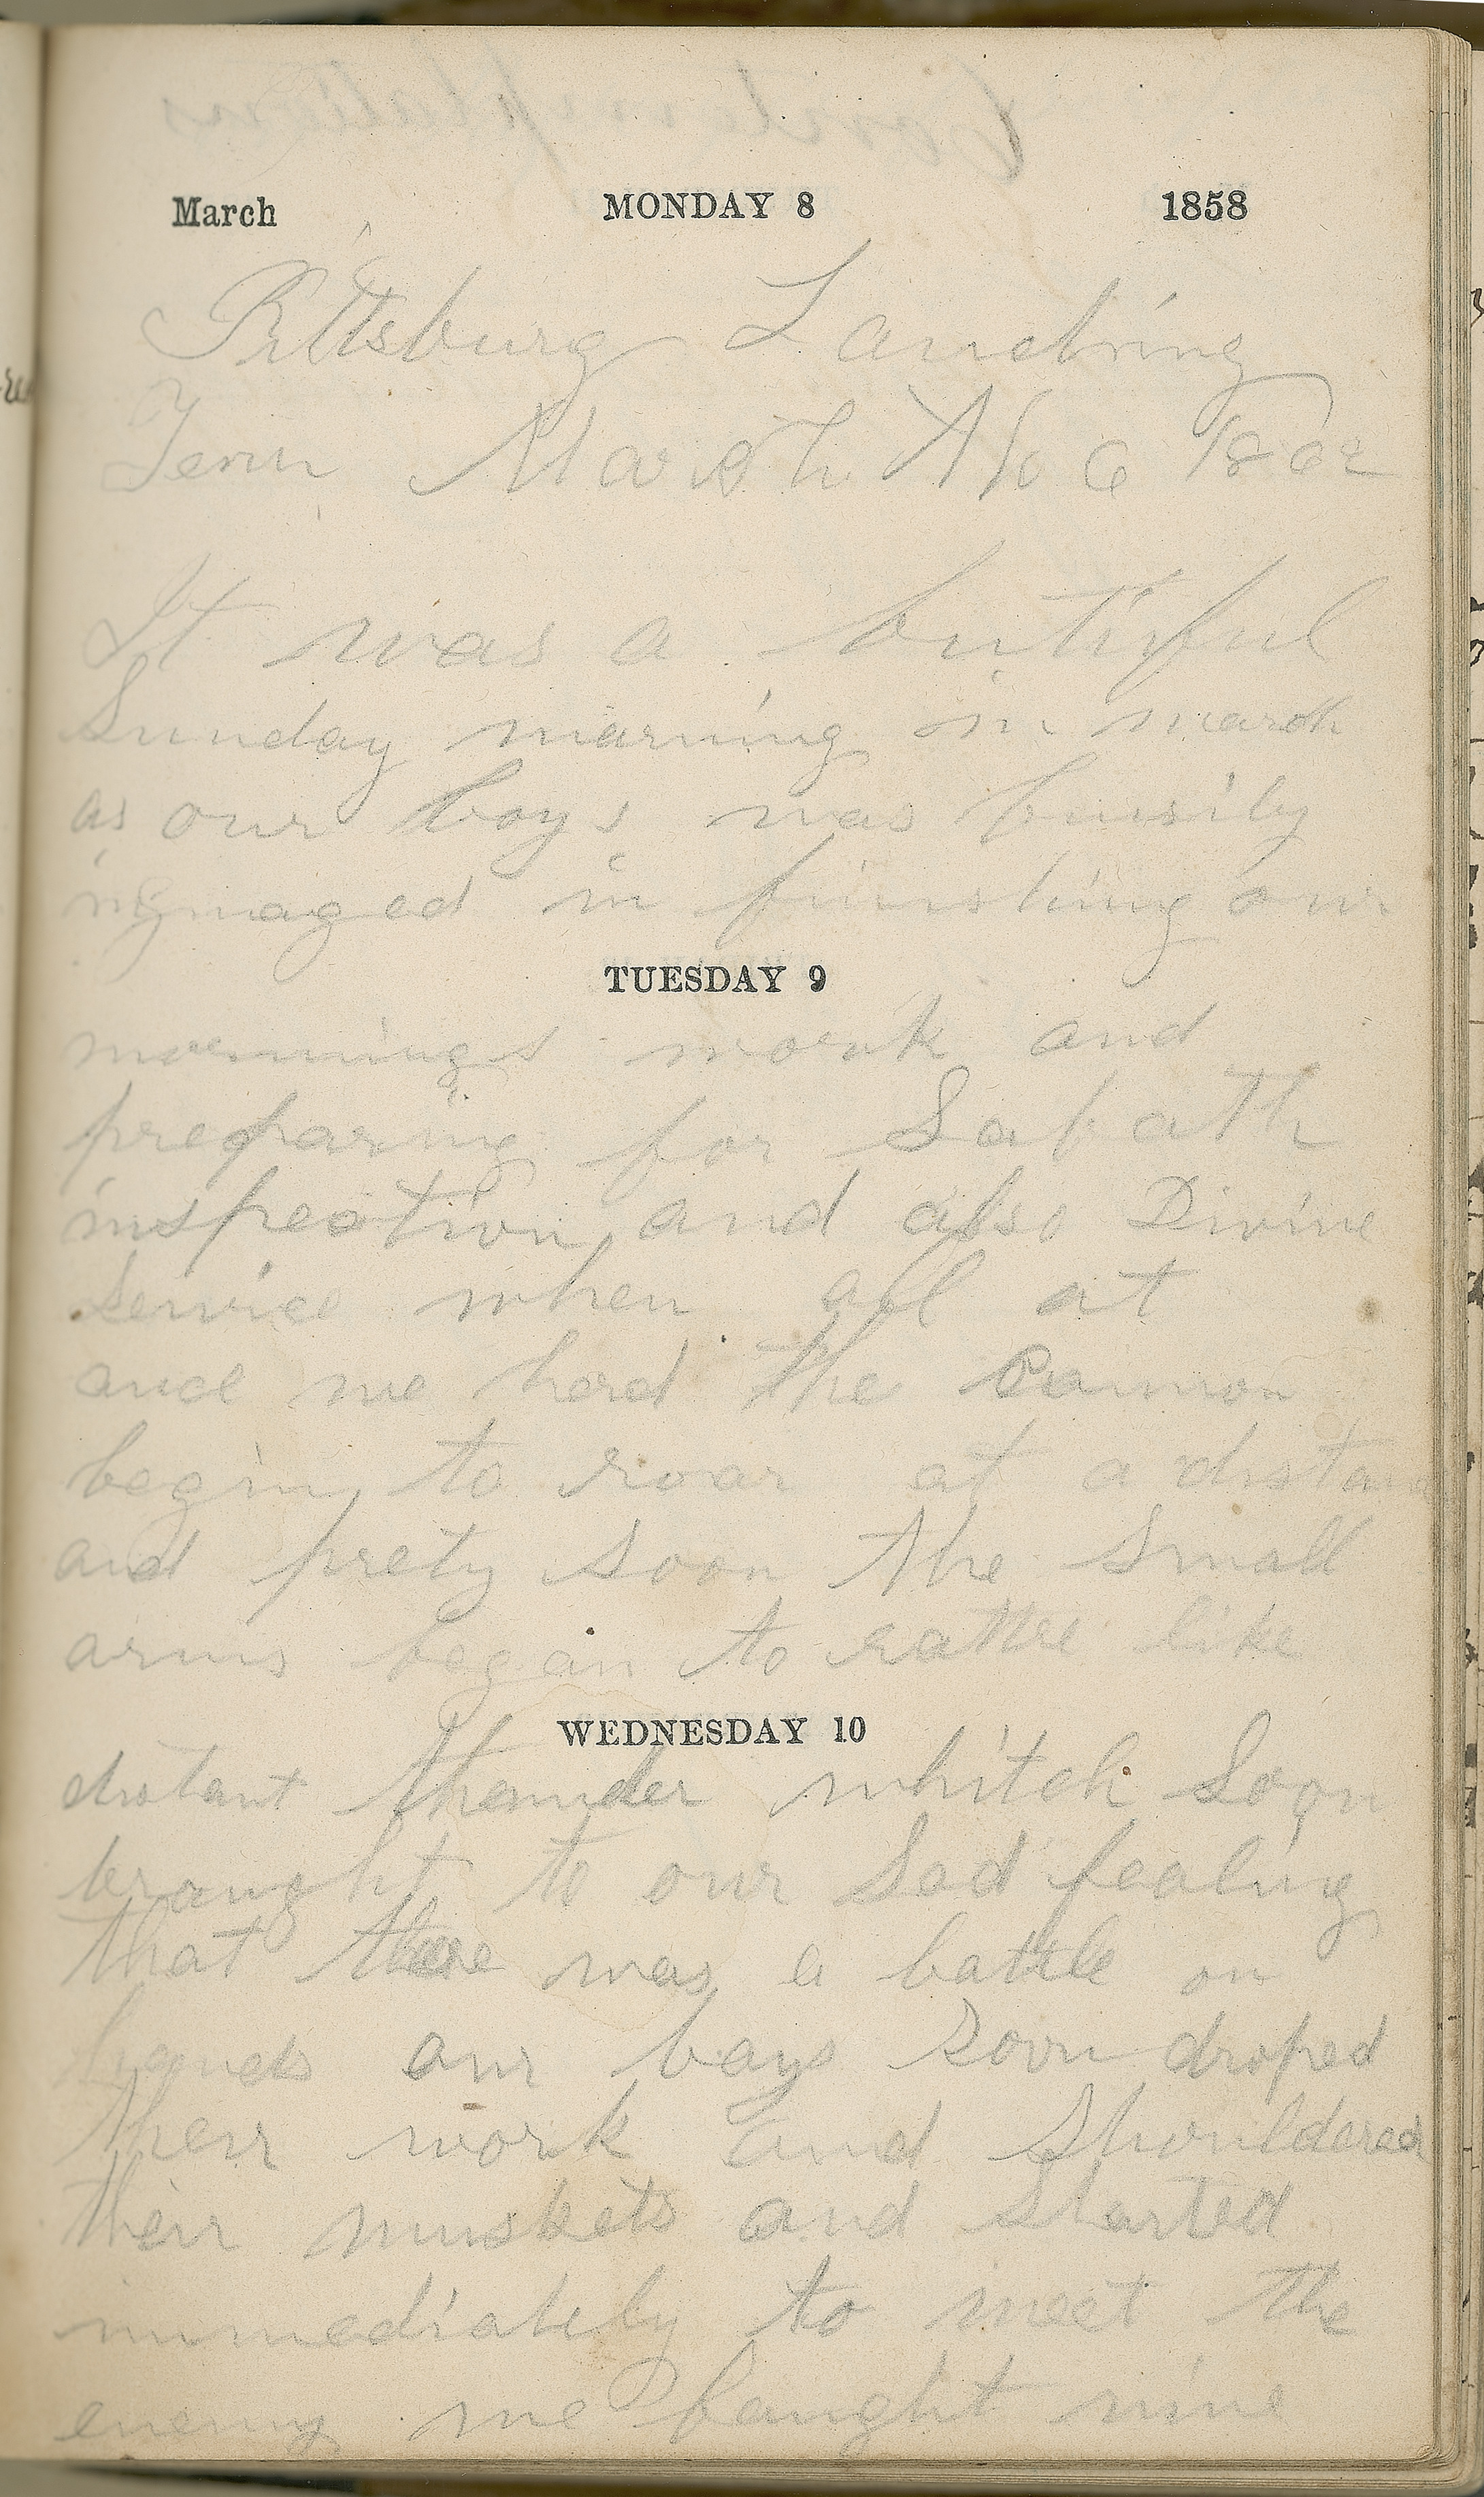 March MONDAY 8 1858
Pittsburg Landing
Tenn March The 6 1862
It was a butiful
Sunday marning in march
as our boys was buisily
ingmaged in finishing our
mornnings work and
preparing for Sabath
inspection and also Divine
Service when all at
ance we herd the Cannon
begin to roar at a distanc
and prety soon the Small
arms began to rattle like
TUESDAY 9
WEDNESDAY 10
distant thunder whitch Soon
braught to our Sad fealing
that thare was a battle on
hands our boys soon droped
their work and Shouldered
their muskets and started
immediately to meet the
enemy we faught nine